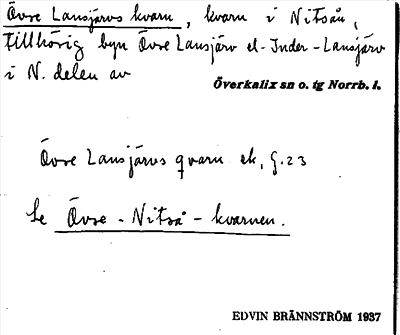 Övre Lansjärvs kvarn, kvarn i Nitsån,
tillhörig byn Övre Lansjärv el. Inder-Lansjärv
i N. delen av
Överkalix sn o. tg Norrb. l.
Övre Lansjärvs qvarn ek, G.23
Se Övre-Nitså-kvarnen.
EDVIN BRÄNNSTRÖM 1937